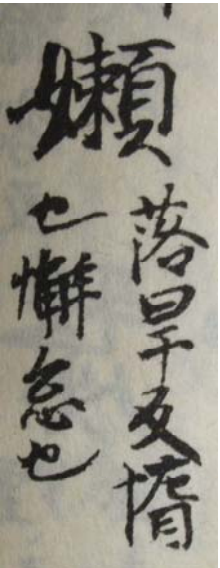 嬾
落旱反惰
也懈怠也